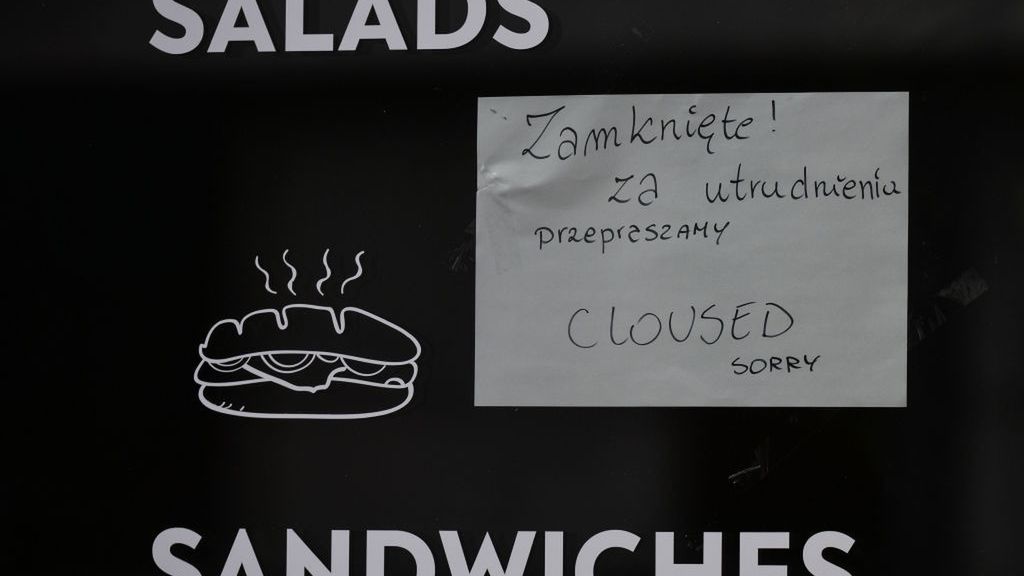 SALADS
Zamknięte!
za utrudnienia
przepraszamy
CLOUSED
SORRY
SANDWICHES